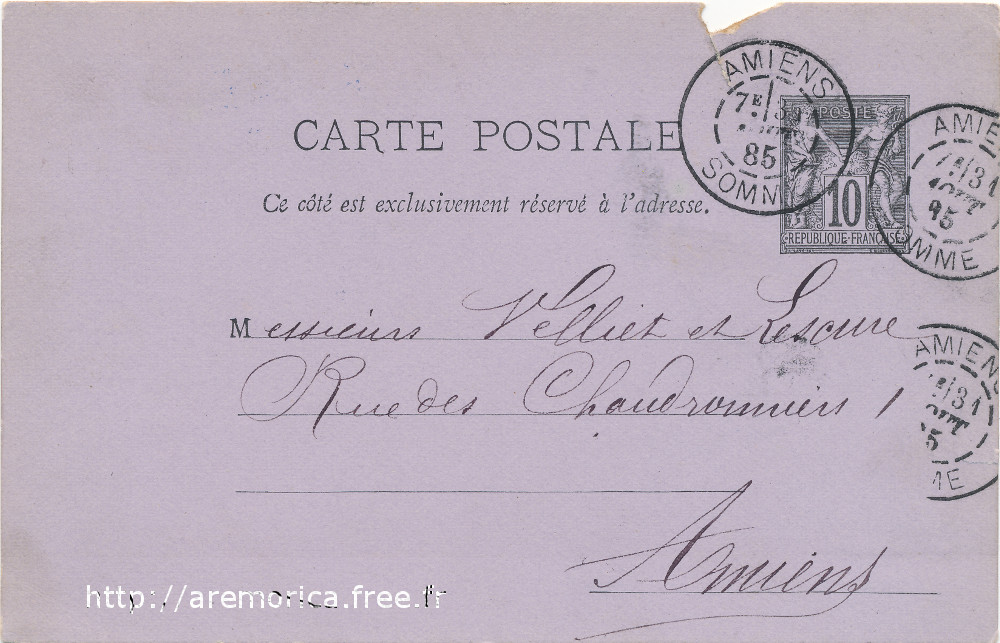 CARTE POSTALE
Ce côté est exclusivement réservé à l'adresse.
AMIENS
7E 31
85
SOMME
POSTE
10
REPUBLIQUE FRANÇAISE
AMIE
31
AOUT
85
SOMME
Messieurs Velliet et Lescure
Rue des Chaudronniers 1
Amiens
AMIENS
31
5
ME
http://aremorica.free.fr